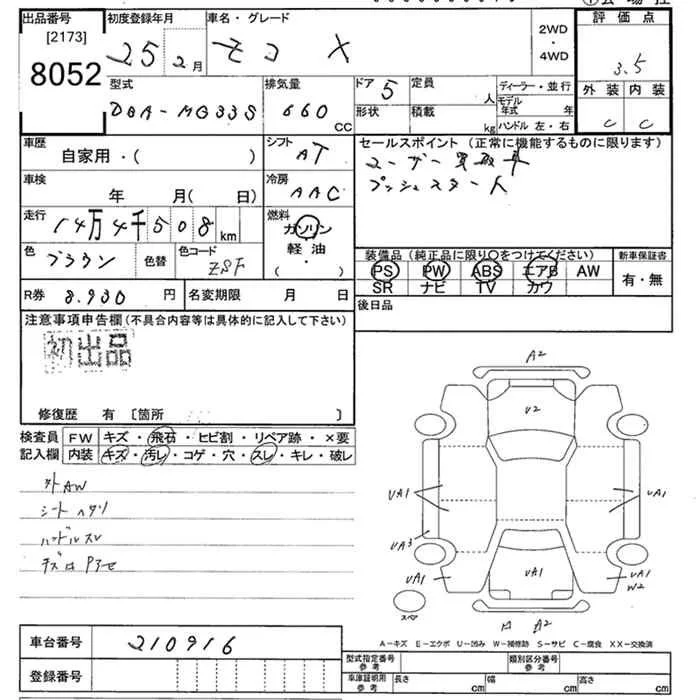 出品番号 初度登録年月 車名・グレード 2WD・4WD 評価点
[2173]
8052 25 2月 モコ X 3.5
外装 内装
C C
型式 排気量 ドア 5 定員 人 ディーラー・並行
DBA-MG33S 660 CC 形状 積載 kg モデル年式 年
ハンドル 左・右
車歴 シフト セールスポイント (正常に機能するものに限ります)
自家用・( ) AT ユーザー買取車
車検 冷房 プッシュスタート
年 月( 日) AAC
走行 14万4千508km 燃料 ガソリン
軽・油
・
( )
色 ブラウン 色替 色コード ZSF
装備品 (純正品に限り○をつけてください) 新車保証書
PS PW ABS エアB AW 有・無
SR ナビ TV カワ
R券 8.930 円 名変期限 月 日 後日品
注意事項申告欄 (不具合内容等は具体的に記入して下さい)
初出品
修復歴 有 〔箇所 〕
検査員 FW キズ・飛石・ヒビ割・リペア跡・×要
記入欄 内装 キズ・汚レ・コゲ・穴・スレ・キレ・破レ
外AW
シートヘタリ
ハンドルスレ
A2
U2
UA1 UA1
UA3
UA1 UA1 UA1
W2
スペア
A2
A-キズ E-エクボ U-凹み W-補修跡 S-サビ C-腐食 XX-交換済
車台番号 210916
登録番号
型式指定番号 参考 類別区分番号 参考
車庫証明用 参考 長さ cm 幅 cm 高さ cm